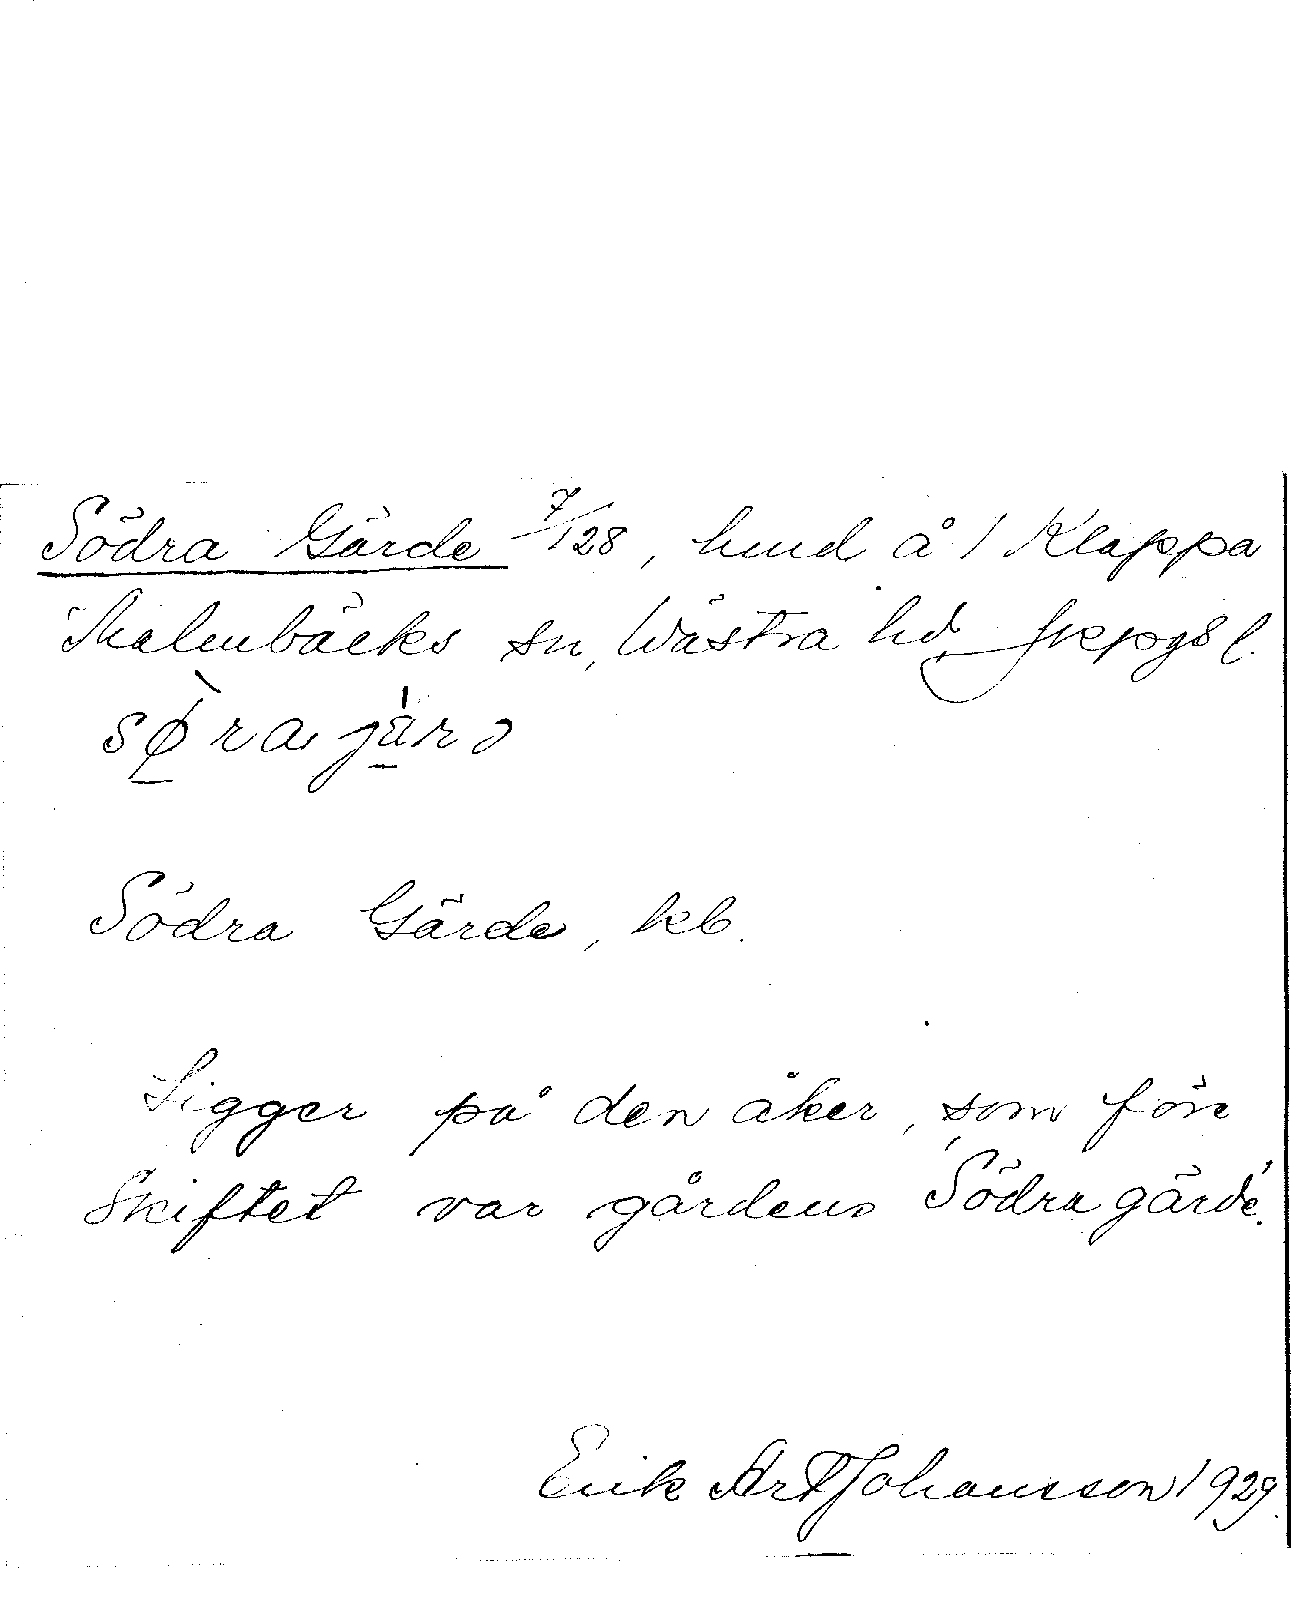 Södra Gärde 7/128, hmd å 1 Klappa
Malmbäcks sn, Västra hd, Jkpgs l.
sø̀ra jä́rə
Södra Gärde, kb.
Ligger på den åker, som före
Skiftet var gårdens "Södra gärde".
Erik Art Johansson 1929.